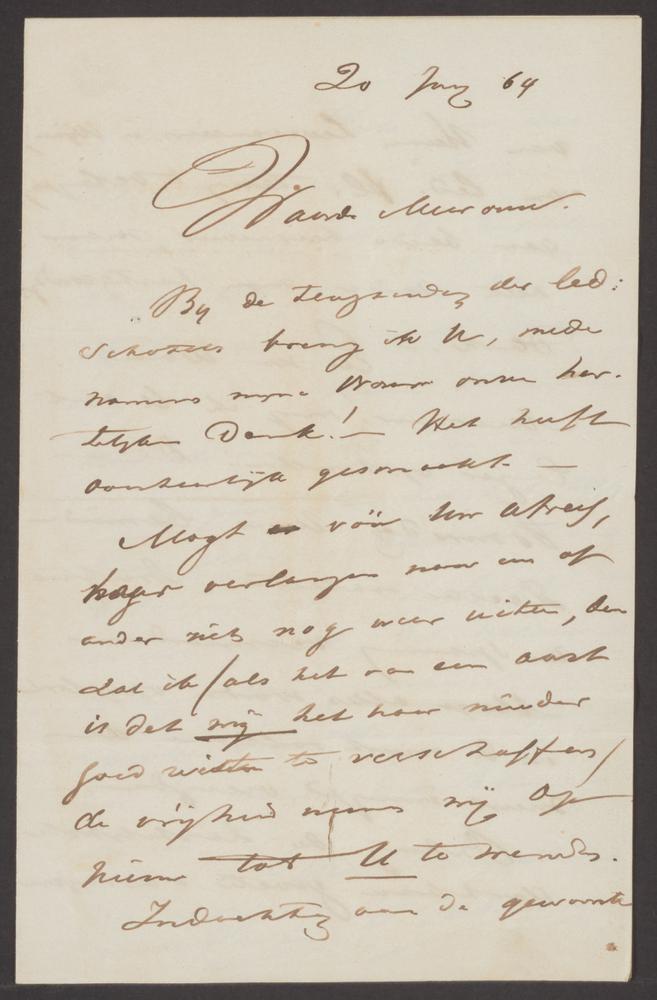 20 Juny 64
Waarde Mevrouw.
By de terugzending der led:
schotels breng ik U, mede
namens mijne Vrouw onzen har-
telyken Dank! — Het heeft
voortreffelijk gesmaakt. —
Mogt er vóór Uw afreis,
hooger verlangen naar een of
ander niets nog weer uiten, dan
zal ik (als het van een aart
is dat mij het haar minder
goed weten te verschaffen)
de vrijheid nemen mij op
nieuw tot U te wenden.
Indachtig aan de gewoonte